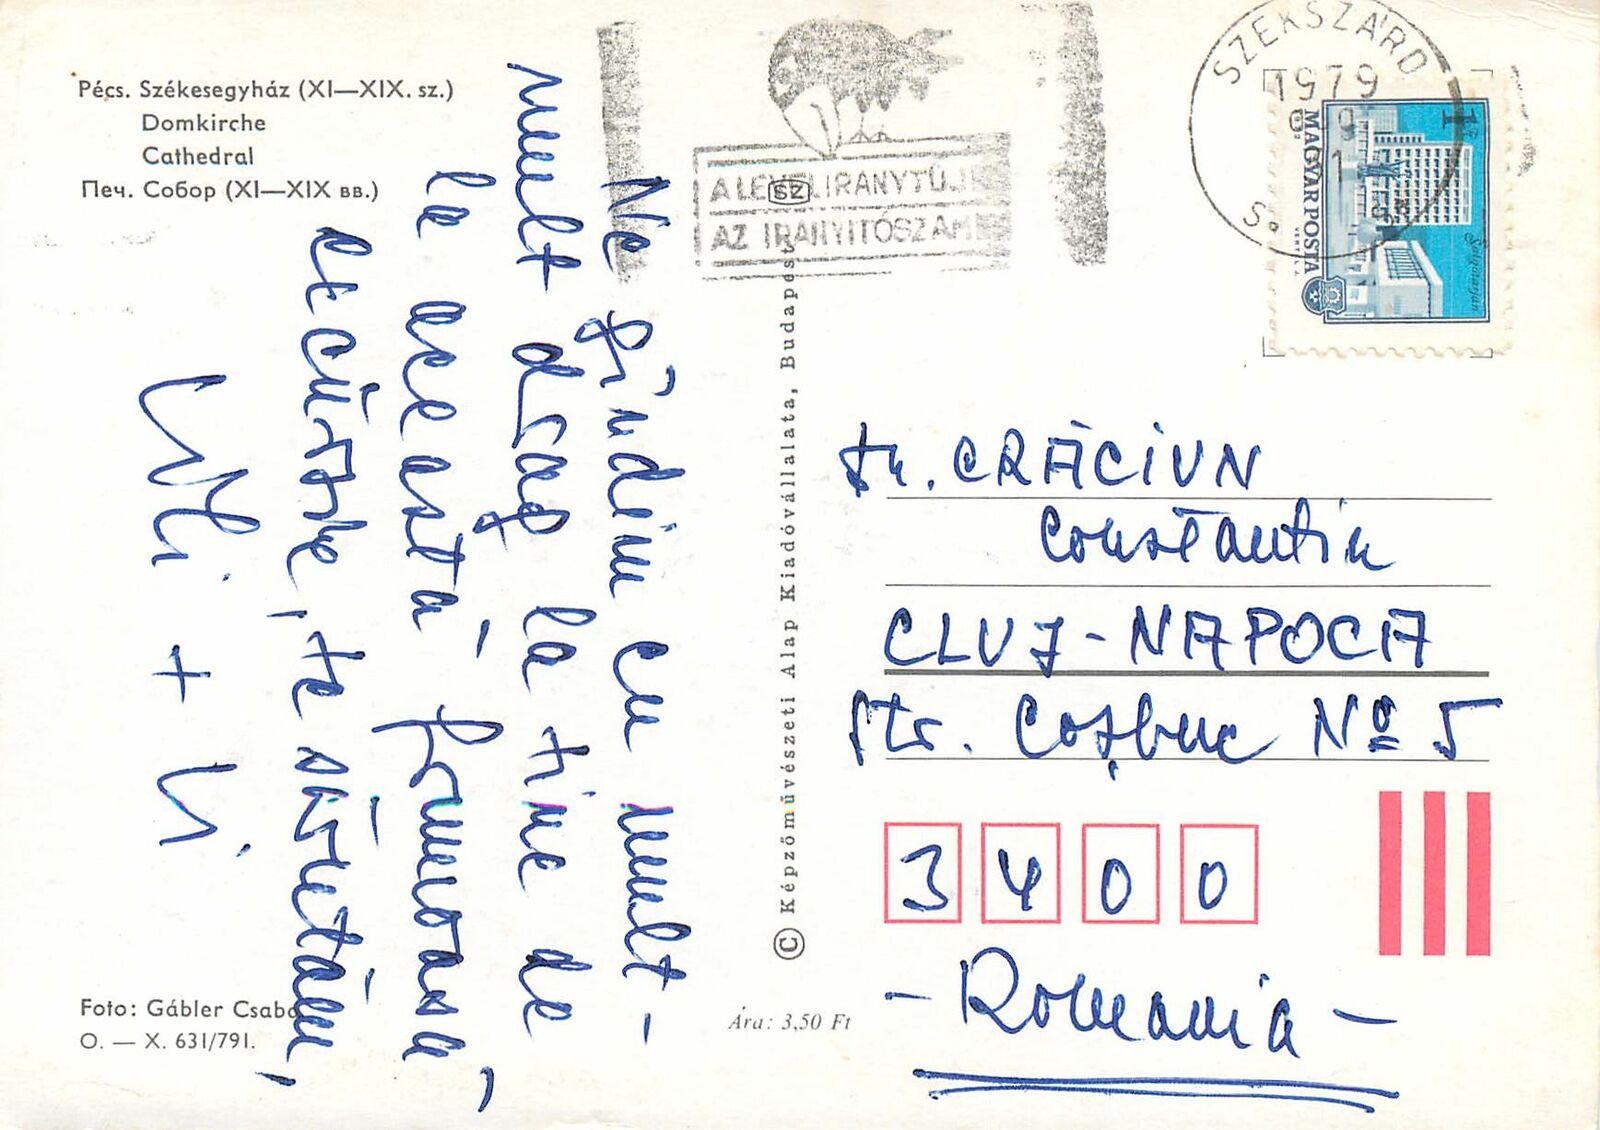 Pécs. Székesegyház (XI—XIX. sz.)
Domkirche
Cathedral
Печ. Собор (XI—XIX вв.)
Ne gîndim cu mult-
mult drag la tine de
la această frumoasă
excursie, te sărutăm,
Lili + Vi
Foto: Gábler Csaba
O. — X. 631/791.
© Képzőművészeti Alap Kiadóvállalata, Budapest
Ára: 3,50 Ft
SZ
A LEVÉL IRÁNYTŰJE
AZ IRÁNYÍTÓSZÁM
SZEKSZÁRD
1979
MAGYAR POSTA
1
Salgótarján
CRĂCIUN
Constantin
CLUJ-NAPOCA
Str. Coșbuc Nº 5
3400
- Romania -